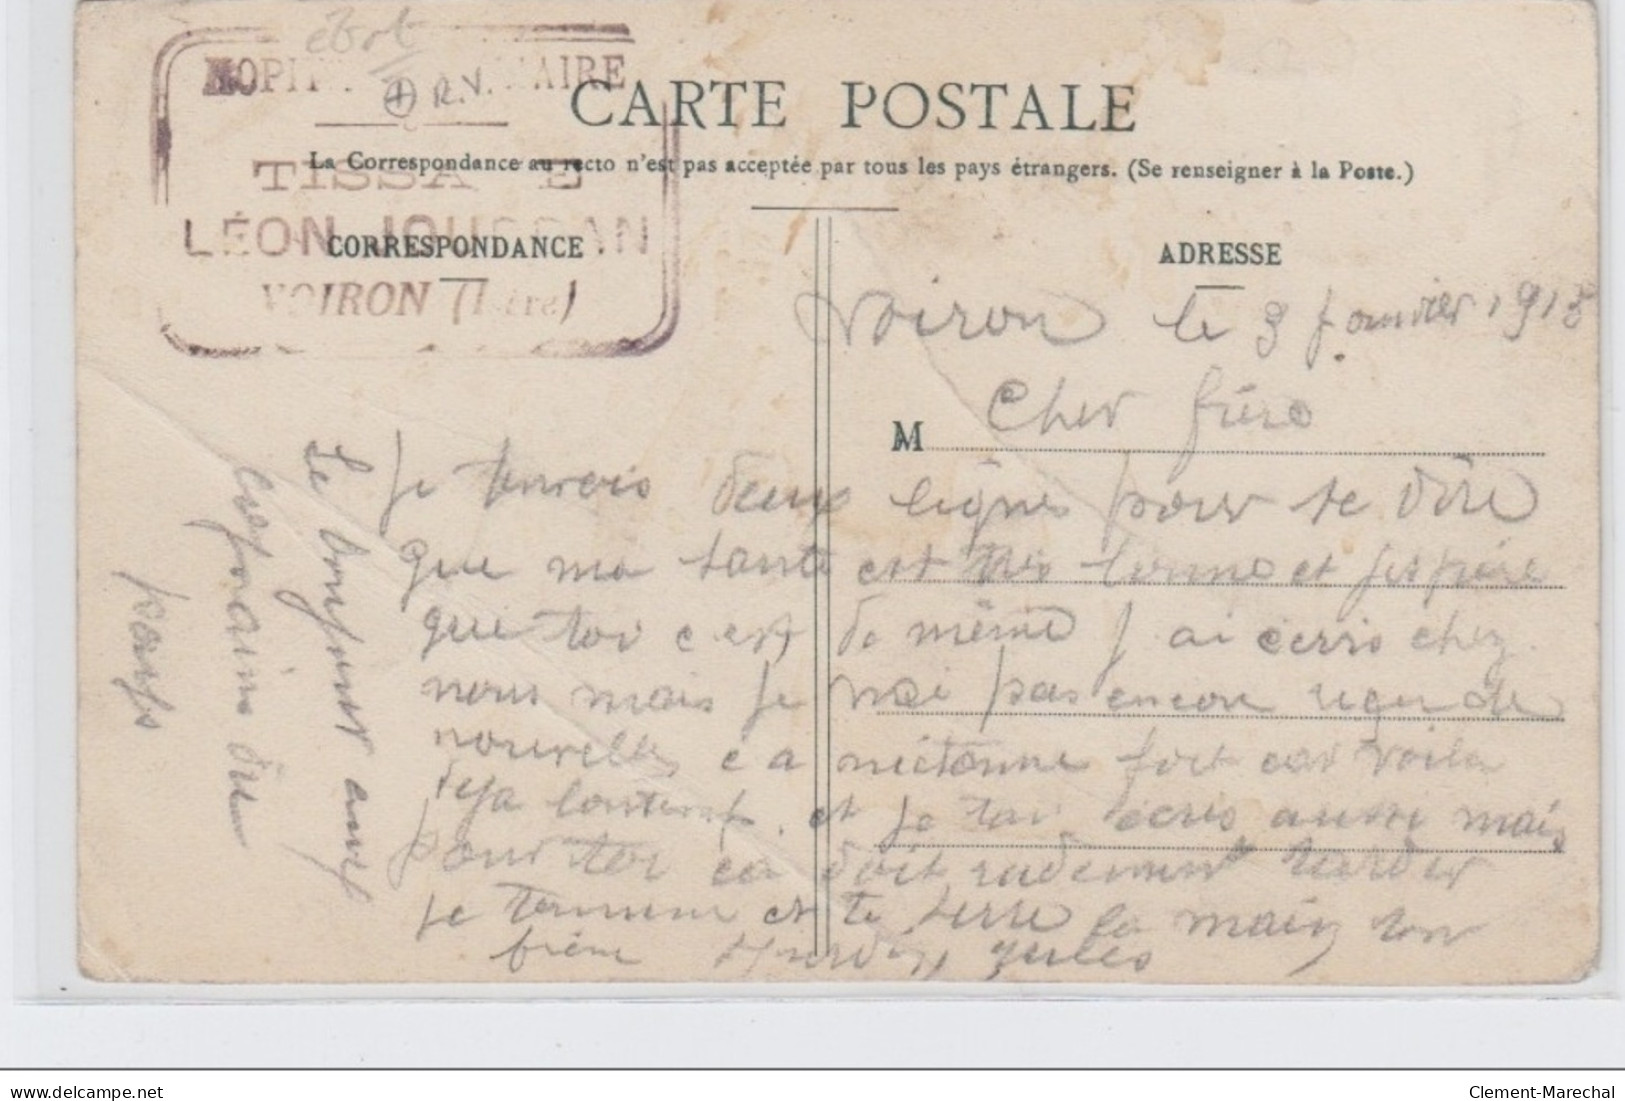 ebot
HOPIT AIRE
R.V.
CARTE POSTALE
La Correspondance au recto n'est pas acceptée par tous les pays étrangers. (Se renseigner à la Poste.)
TISSA E
LÉON JOUSSAN
VOIRON (Isère)
CORRESPONDANCE
ADRESSE
Voiron le 3 Janvier 1915
Cher frère
M
Je tenvois deux lignes pour te dire
que ma santé est très bonne et jespère
que toi c est de même J ai ecris chez
nous mais je nai pas encore reçu de
nouvelles ca métonne fort car voila
deja lontemp et je tai ecris aussi mais
pour toi ca doit rudement tarder
je termine et te serre la main ton
frère Jules
Le bonjour aux
copains du
pays
delcampe.net
Clement-Marechal